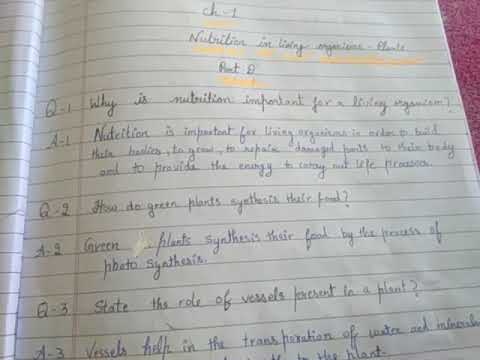 Ch-1
Nutrition in living organisms - Plants
Part D
Q-1 Why is nutrition important for a living organism?
A-1 Nutrition is important for living organisms in order to build
their bodies, to grow, to repair damaged parts to their body
and to provide the energy to carry out life processes.
Q-2 How do green plants synthesis their food?
A-2 Green plants synthesis their food by the process of
photo synthesis.
Q-3 State the role of vessels present in a plant?
A-3 Vessels help in the transporation of water and minerals
to the plant.